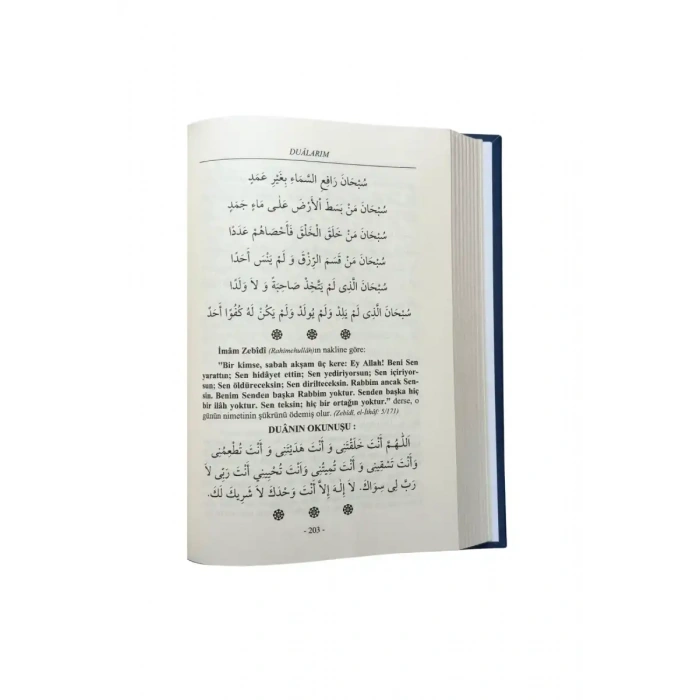 DUÂLARIM
سُبْحَانَ رَافِعِ السَّمَاءِ بِغَيْرِ عَمَدٍ
سُبْحَانَ مَنْ بَسَطَ الْأَرْضَ عَلٰى مَاءٍ جَمَدٍ
سُبْحَانَ مَنْ خَلَقَ الْخَلْقَ فَأَحْصَاهُمْ عَدَدًا
سُبْحَانَ مَنْ قَسَمَ الرِّزْقَ وَ لَمْ يَنْسَ أَحَدًا
سُبْحَانَ الَّذِى لَمْ يَتَّخِذْ صَاحِبَةً وَ لاَ وَلَدًا
سُبْحَانَ الَّذِى لَمْ يَلِدْ وَلَمْ يُولَدْ وَلَمْ يَكُنْ لَهُ كُفُوًا أَحَدٌ
İmâm Zebîdî (Rahimehullâh)ın nakline göre:
"Bir kimse, sabah akşam üç kere: Ey Allah! Beni Sen
yarattın; Sen hidâyet ettin; Sen yediriyorsun; Sen içiriyor-
sun; Sen öldüreceksin; Sen dirilteceksin. Rabbim ancak Sen-
sin. Benim Senden başka Rabbim yoktur. Senden başka hiç
bir ilâh yoktur. Sen teksin; hiç bir ortağın yoktur." derse, o
günün nimetinin şükrünü ödemiş olur. (Zebîdî, el-İthâf: 5/171)
DUÂNIN OKUNUŞU :
اَللّٰهُمَّ أَنْتَ خَلَقْتَنِى وَ أَنْتَ هَدَيْتَنِى وَ أَنْتَ تُطْعِمُنِى
وَأَنْتَ تَسْقِينِى وَ أَنْتَ تُمِيتُنِى وَأَنْتَ تُحْيِينِى أَنْتَ رَبِّى لاَ
رَبَّ لِى سِوَاكَ. لاَ إِلٰهَ إِلاَّ أَنْتَ وَحْدَكَ لاَ شَرِيكَ لَكَ.
- 203 -